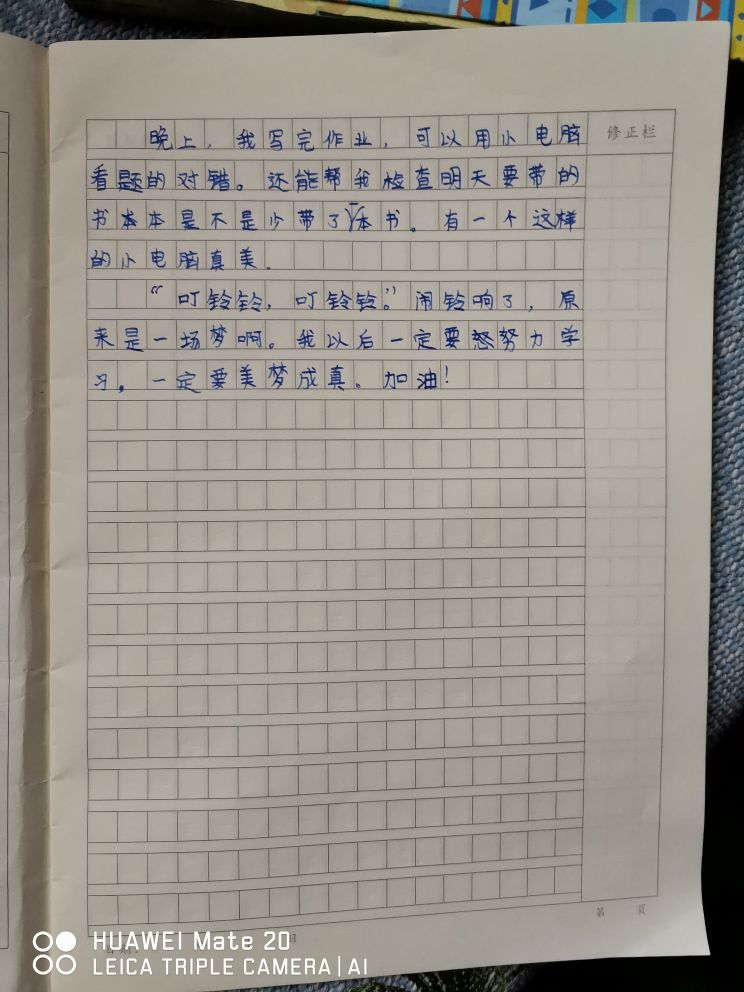 晚上，我写完作业，可以用小电脑
修正栏
看题的对错。还能帮我检查明天要带的
书本本是不是少带了本书。有一个这样
的小电脑真美.
“叮铃铃，叮铃铃。”闹铃响了，原
来是一场梦啊。我以后一定要怒努力学
习。一定要美梦成真。加油！
第 页
HUAWEI Mate 20
LEICA TRIPLE CAMERA | AI